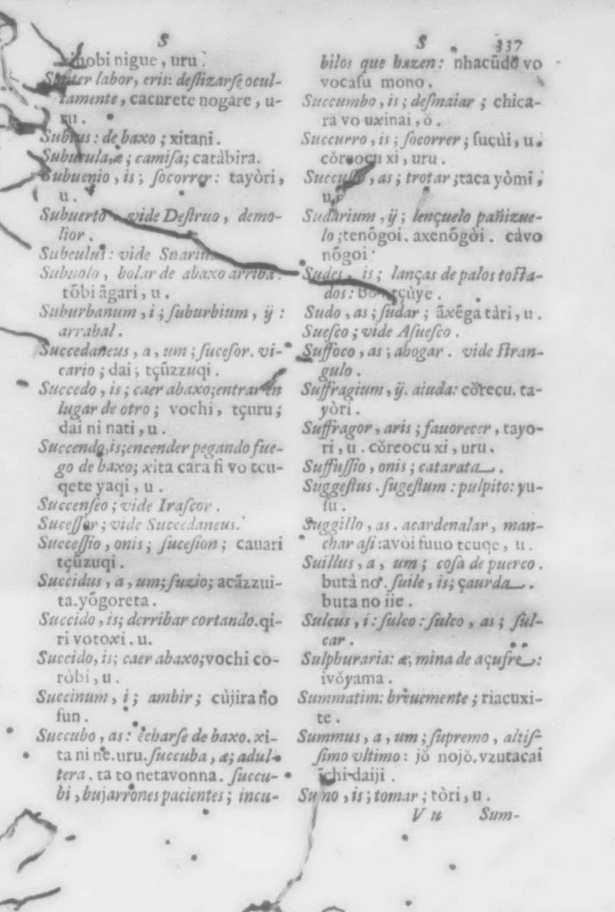 S
nobi nigue, uru.
labor, eris: deslizarse ocul-
tamente, cacurete nogare, u-
ru.
Subtus: de baxo; xitani.
Subucula, æ; camisa; catàbira.
Subuenio, is; socorrer: tayòri,
u.
Subuerto. vide Destruo, demo-
lior.
Subculus: vide
Subuolo, bolar de abaxo arriba.
tõbi ãgari, u.
Suburbanum, i; suburbium, ÿ:
arrabal.
Succedaneus, a, um; sucesor. vi-
cario; dai; tçũzzuqi.
Succedo, is; caer abaxo; entrar en
lugar de otro; vochi, tçuru;
dai ni nati, u.
Succendo, is; encender pegando fue-
go de baxo; xita cara fi vo tcu-
qete yaqi, u.
Succenseo; vide Irascor.
Sucessor; vide Succedaneus.
Successio, onis; sucesion; cauari
tçũzuqi.
Succidus, a, um; suzio; acãzzui-
ta. yõgoreta.
Succido, is; derribar cortando. qi-
ri votoxi. u.
Succido, is; caer abaxo; vochi co-
ròbi, u.
Succinum, i; ambir; cùjira no
fun.
Succubo, as: echarse de baxo. xi-
ta ni ne. uru. succuba, æ; adul-
tera. ta to netavonna. succu-
bi, bujarrones pacientes; incu-
S 337
bilos que hazen: nhacũdo vo
vocasu mono.
Succumbo, is; desmaiar; chica-
ra vo uxinai, ò.
Succurro, is; socorrer; sucùi, u.
còreocu xi, uru.
as; trotar; taca yòmi,
u.
Sudarium, ÿ; lençuelo pañizue-
lo; tenõgoi. axenõgòi. càvo
nõgoi.
Sudes, is; lanças de palos tosta-
dos:
Sudo, as; sudar; ãxẽga tàri, u.
Suesco; vide Asuesco.
Suffoco, as; ahogar. vide stran-
gulo.
Suffragium, ÿ. aiuda: còrecu. ta-
yòri.
Suffragor, aris; fauorecer, tayo-
ri, u. còreocu xi, uru.
Suffussio, onis; catarata.
Suggestus. sugestum: pulpito: yu-
su.
Suggillo, as. acardenalar, man-
char asi: avoi fuuo tcuqe, u.
Suillus, a, um; cosa de puerco.
butà no. suile, is; çaurda.
buta no iie.
Sulcus, i: sulco: sulco, as; sul-
car.
Sulphuraria: æ, mina de açufre:
ivõyama.
Summatim: breuemente; riacuxi-
te.
Summus, a, um; supremo, altis-
simo vltimo: jõ nojõ. vzutacai
ichi daiji.
Sumo, is; tomar; tòri, u.
V u Sum-